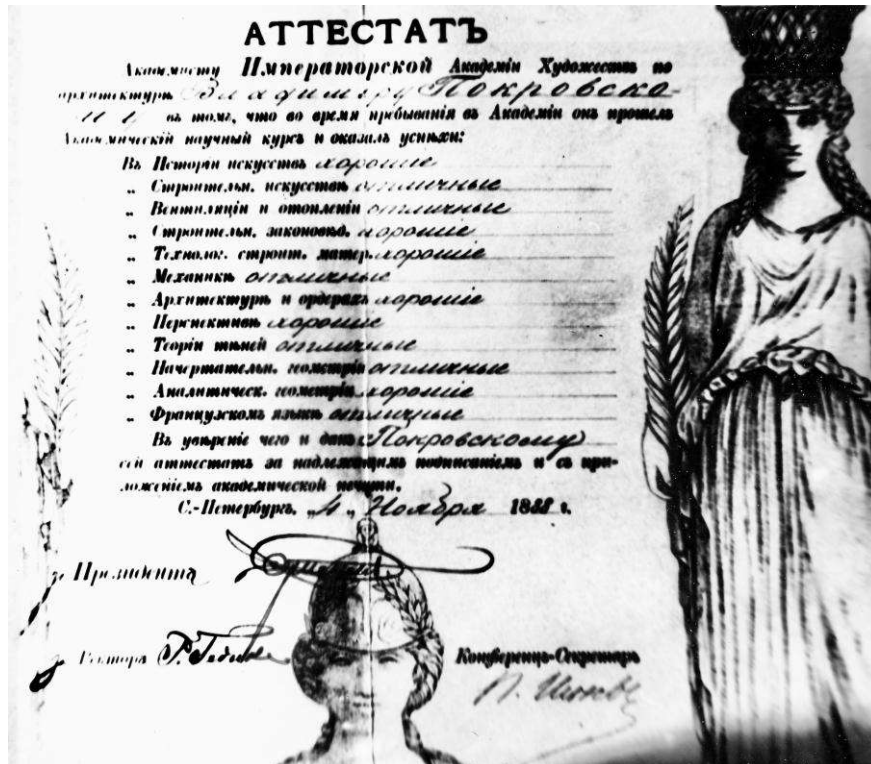 АТТЕСТАТЪ
Академисту Императорской Академіи Художествъ по
архитектурѣ Владиміру Покровско-
му въ томъ, что во время пребыванія въ Академіи онъ прошелъ
Академическій научный курсъ и оказалъ успѣхи:
Въ Исторіи искусствъ хорошіе
„ Строительн. искусствѣ отличные
„ Вентиляціи и отопленіи отличные
„ Строительн. законовѣд. хорошіе
„ Технолог. строит. матер. хорошіе
„ Механикѣ отличные
„ Архитектурѣ и ордерахъ хорошіе
„ Перспективѣ хорошіе
„ Теоріи тѣней отличные
„ Начертательн. геометріи отличные
„ Аналитическ. геометріи хорошіе
„ Французскомъ языкѣ отличные
Въ увѣреніе чего и данъ Покровскому
сей аттестатъ за надлежащимъ подписаніемъ и съ при-
ложеніемъ академической печати.
С.-Петербургъ. „4„ Ноября 1888 г.
Президента
Ректоръ
Конференцъ-Секретарь